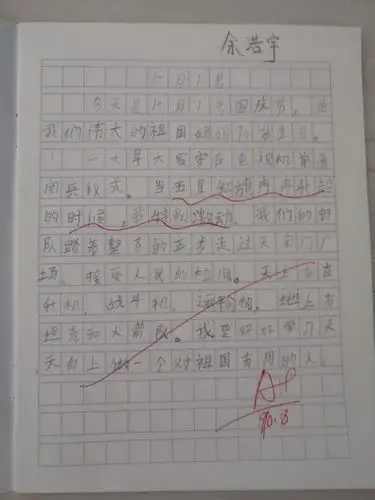 余浩宇
10月1号
今天是10月1号国庆节。是
我们伟大的祖国妈妈的生日。
一大早大家守在电视机前看
阅兵仪式。当五星红旗冉冉升起
的时候，我特别激动。我们的部
队踏着整齐的正步走过天安门广
场。接受人民的检阅。天上有直
升机，战斗机，运输机。地上有
坦克和火箭队。我要好好学习天
天向上做一个对祖国有用的人。